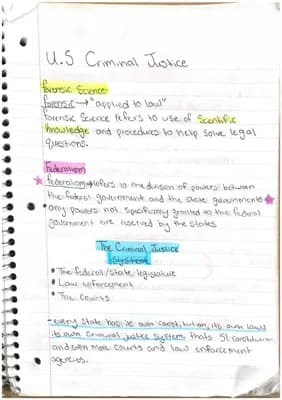 U.S Criminal Justice
Forensic Science
forensic → "applied to law"
Forensic Science refers to use of Scientific
Knowledge and procedures to help solve legal
questions.
Federalism
federalism → refers to the division of powers between
the federal government and the state governments
• any powers not specifically granted to the federal
government are reserved by the states
The Criminal Justice
System
• The federal/state legislature
• Law enforcement
• The Courts
- every state has its own constitution, its own laws
its own Criminal justice system thats 51 constitution
and even more courts and law enforcement
agencies.